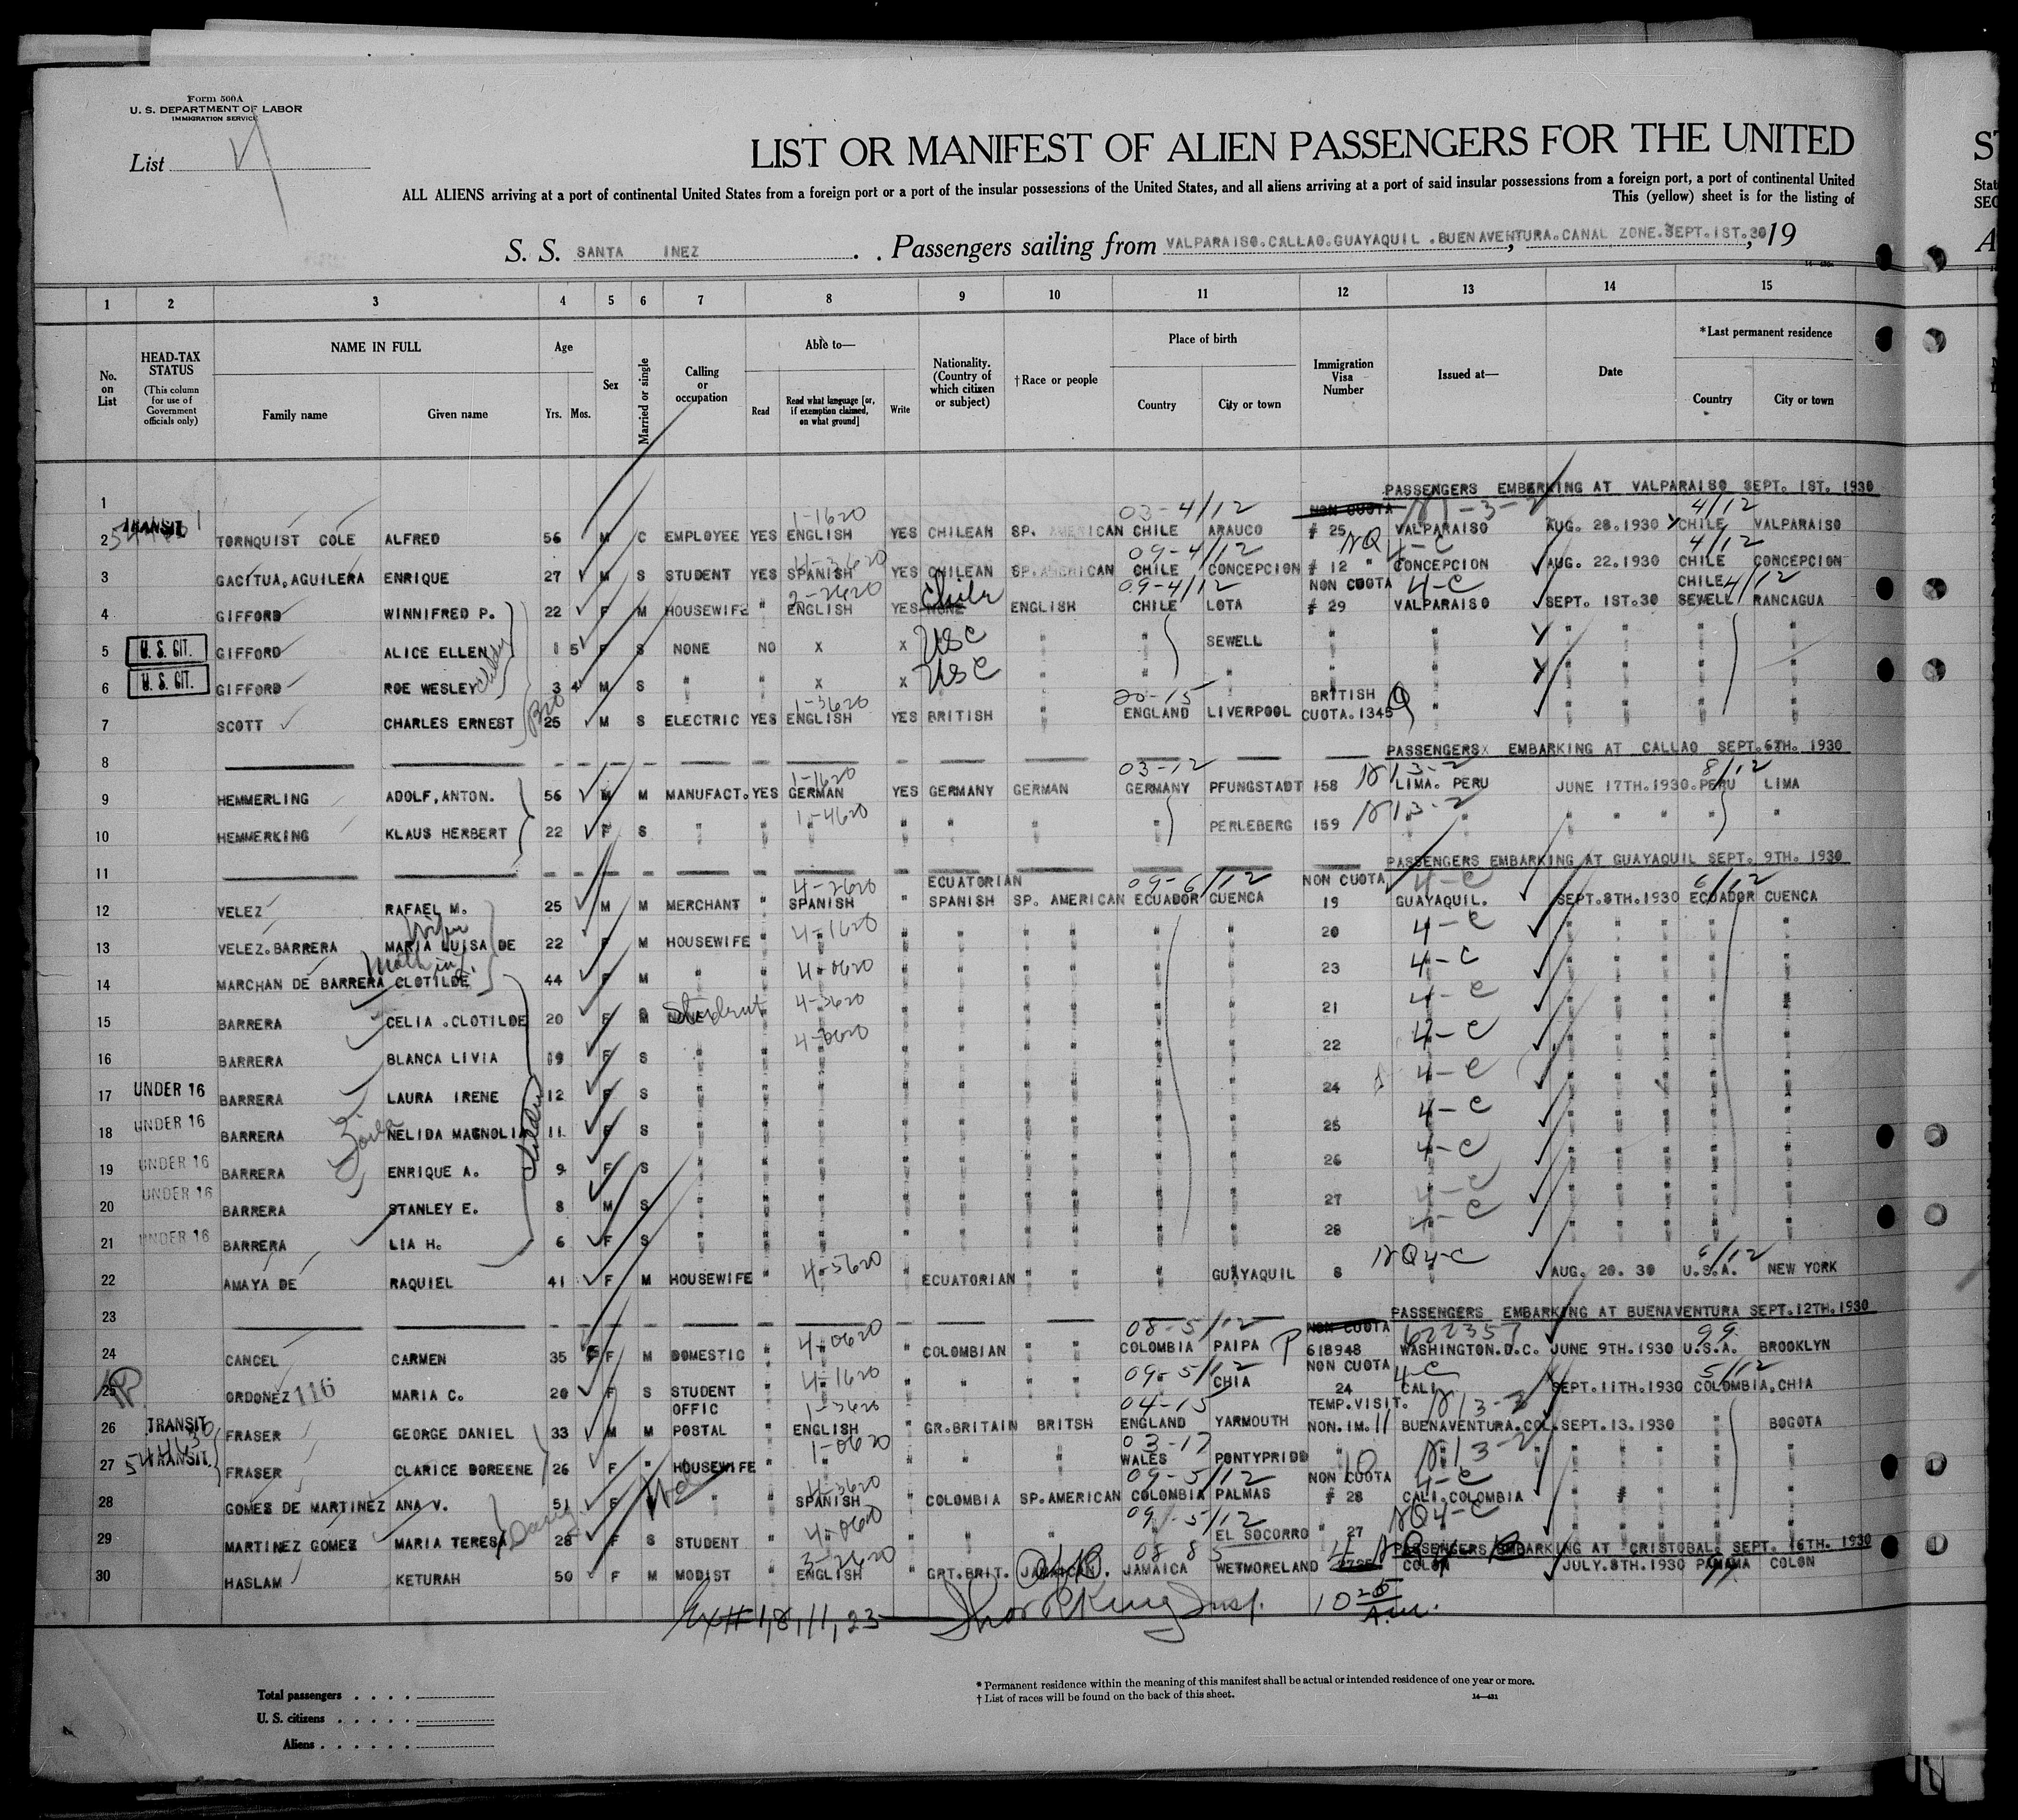 Form 500A
U. S. DEPARTMENT OF LABOR
IMMIGRATION SERVICE
List
LIST OR MANIFEST OF ALIEN PASSENGERS FOR THE UNITED
ALL ALIENS arriving at a port of continental United States from a foreign port or a port of the insular possessions of the United States, and all aliens arriving at a port of said insular possessions from a foreign port, a port of continental United
This (yellow) sheet is for the listing of
S. S. SANTA INEZ Passengers sailing from VALPARAISO.CALLAO.GUAYAQUIL .BUENAVENTURA.CANAL ZONE.SEPT.1ST.30, 19
1 2 3 4 5 6 7 8 9 10 11 12 13 14 15
No. on List
HEAD-TAX STATUS
(This column for use of Government officials only)
NAME IN FULL
Family name Given name
Age
Yrs. Mos.
Sex
Married or single
Calling or occupation
Able to—
Read
Read what language [or, if exemption claimed, on what ground]
Write
Nationality. (Country of which citizen or subject)
†Race or people
Place of birth
Country City or town
Immigration Visa Number
Issued at—
Date
*Last permanent residence
Country City or town
1 PASSENGERS EMBERKING AT VALPARAISO SEPT. 1ST. 1930
1-1620 03-4/12 NON CUOTA 4/12
2 TRANSIT TORNQUIST COLE ALFRED 56 M C EMPLOYEE YES ENGLISH YES CHILEAN SP. AMERICAN CHILE ARAUCO # 25 VALPARAISO AUG. 28.1930 CHILE VALPARAISO
09-4/12 NQ 4-C 4/12
3 GACITUA,AGUILERA ENRIQUE 27 M S STUDENT YES SPANISH YES CHILEAN SP.AMERICAN CHILE CONCEPCION # 12 " CONCEPCION AUG. 22.1930 CHILE CONCEPCION
2-2620 Chile 09-4/12 NON CUOTA 4-C CHILE 4/12
4 GIFFORD WINNIFRED P. 22 F M HOUSEWIFE " ENGLISH YES NONE ENGLISH CHILE LOTA # 29 VALPARAISO SEPT. 1ST.30 SEWELL RANCAGUA
5 U. S. CIT. GIFFORD ALICE ELLEN 5 F S NONE NO X X USC " " SEWELL " " " " " "
6 U. S. CIT. GIFFORD ROE WESLEY 3 4 M S " " X X USC " " " " " " " "
1-3620 20-15 BRITISH Q
7 SCOTT CHARLES ERNEST Bro 25 M S ELECTRIC YES ENGLISH YES BRITISH " ENGLAND LIVERPOOL CUOTA.1345 " " " " "
8 PASSENGERSX EMBARKING AT CALLAO SEPT.6TH. 1930
1-1620 03-12 8/12
9 HEMMERLING ADOLF,ANTON. 56 M M MANUFACT. YES GERMAN YES GERMANY GERMAN GERMANY PFUNGSTADT 158 LIMA. PERU JUNE 17TH.1930. PERU LIMA
1-4620
10 HEMMERKING KLAUS HERBERT 22 F S " " " " " " " PERLEBERG 159 " " " " " "
11 PASSENGERS EMBARKING AT GUAYAQUIL SEPT. 9TH. 1930
4-2620 ECUATORIAN 09-6/12 NON CUOTA 4-C 6/12
12 VELEZ RAFAEL M. 25 M M MERCHANT " SPANISH " SPANISH SP. AMERICAN ECUADOR CUENCA 19 GUAYAQUIL. SEPT.8TH.1930 ECUADOR CUENCA
Wife 4-1620 4-C
13 VELEZ.BARRERA MARIA LUISA DE 22 F M HOUSEWIFE " " " " " " " " 20 " " " " " "
4-0620 4-C
14 MARCHAN DE BARRERA CLOTILDE 44 F M " " " " " " " " " 23 " " " " " "
Student 4-3620 4-C
15 BARRERA CELIA .CLOTILDE 20 F M " " " " " " " " 21 " " " " " "
4-0620 4-C
16 BARRERA BLANCA LIVIA 19 F S " " " " " " " " " 22 " " " " " "
4-C
17 UNDER 16 BARRERA LAURA IRENE 12 F S " " " " " " " " " 24 " " " " " "
4-C
18 UNDER 16 BARRERA NELIDA MAGNOLIA 11 F S " " " " " " " " " 25 " " " " " "
Children 4-C
19 UNDER 16 BARRERA ENRIQUE A. 9 F S " " " " " " " " " 26 " " " " " "
4-C
20 UNDER 16 BARRERA STANLEY E. 8 M S " " " " " " " " " 27 " " " " " "
4-C
21 UNDER 16 BARRERA LIA H. 6 F S " " " " " " " " " 28 " " " " " "
4-5620 NQ4-C 6/12
22 AMAYA DE RAQUIEL 41 F M HOUSEWIFE " " " ECUATORIAN " " " GUAYAQUIL 8 " AUG. 20. 30 U.S.A. NEW YORK
23 PASSENGERS EMBARKING AT BUENAVENTURA SEPT.12TH.1930
4-0620 08-5/12 NON CUOTA 622357 99
24 CANCEL CARMEN 35 F M DOMESTIC " " " COLOMBIAN " " COLOMBIA PAIPA P 618948 WASHINGTON.D.C. JUNE 9TH.1930 U.S.A. BROOKLYN
4-1620 09-5/12 NON CUOTA 4-C 5/12
25 ORDONEZ 116 MARIA C. 20 F S STUDENT " " " " " " " CHIA 24 CALI SEPT.11TH.1930 COLOMBIA.CHIA
OFFIC 1-3620 04-15 TEMP.VISIT.
26 TRANSIT FRASER GEORGE DANIEL 33 M M POSTAL " ENGLISH " GR.BRITAIN BRITSH ENGLAND YARMOUTH NON.IM. 11 BUENAVENTURA.COL. SEPT.13.1930 " BOGOTA
1-0620 03-17
27 TRANSIT. FRASER CLARICE DOREENE 26 F " HOUSEWIFE " " " " " WALES PONTYPRIDD " 10 " " " " " "
4-3620 09-5/12 NON CUOTA 4-C
28 GOMES DE MARTINEZ ANA V. 51 F Wd " " SPANISH " COLOMBIA SP.AMERICAN COLOMBIA PALMAS # 28 CALI.COLOMBIA " # " " "
4-0620 09-5/12 NQ4-C
29 MARTINEZ GOMEZ MARIA TERESA 28 F S STUDENT " " " " " " EL SOCORRO " 27 PASSENGERS EMBARKING AT CRISTOBAL. SEPT. 16TH. 1930
3-2620 08 8 5
30 HASLAM KETURAH 50 F M MODIST " ENGLISH " GRT.BRIT. JAMAICAN. JAMAICA WETMORELAND COLON JULY.8TH.1930 PANAMA COLON
1,8,11,23 King Insp. 10 A.M.
Total passengers . . . .
U. S. citizens . . . . .
Aliens . . . . . .
* Permanent residence within the meaning of this manifest shall be actual or intended residence of one year or more.
† List of races will be found on the back of this sheet.
14—431